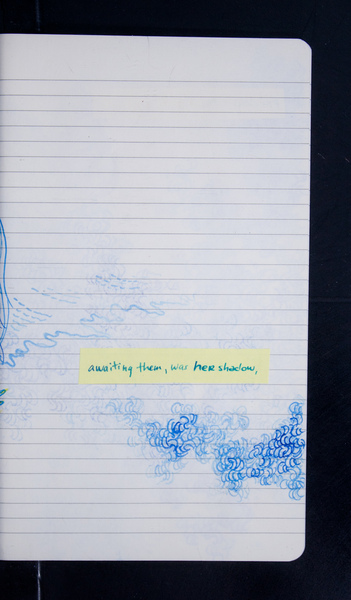 awaiting them, was her shadow,